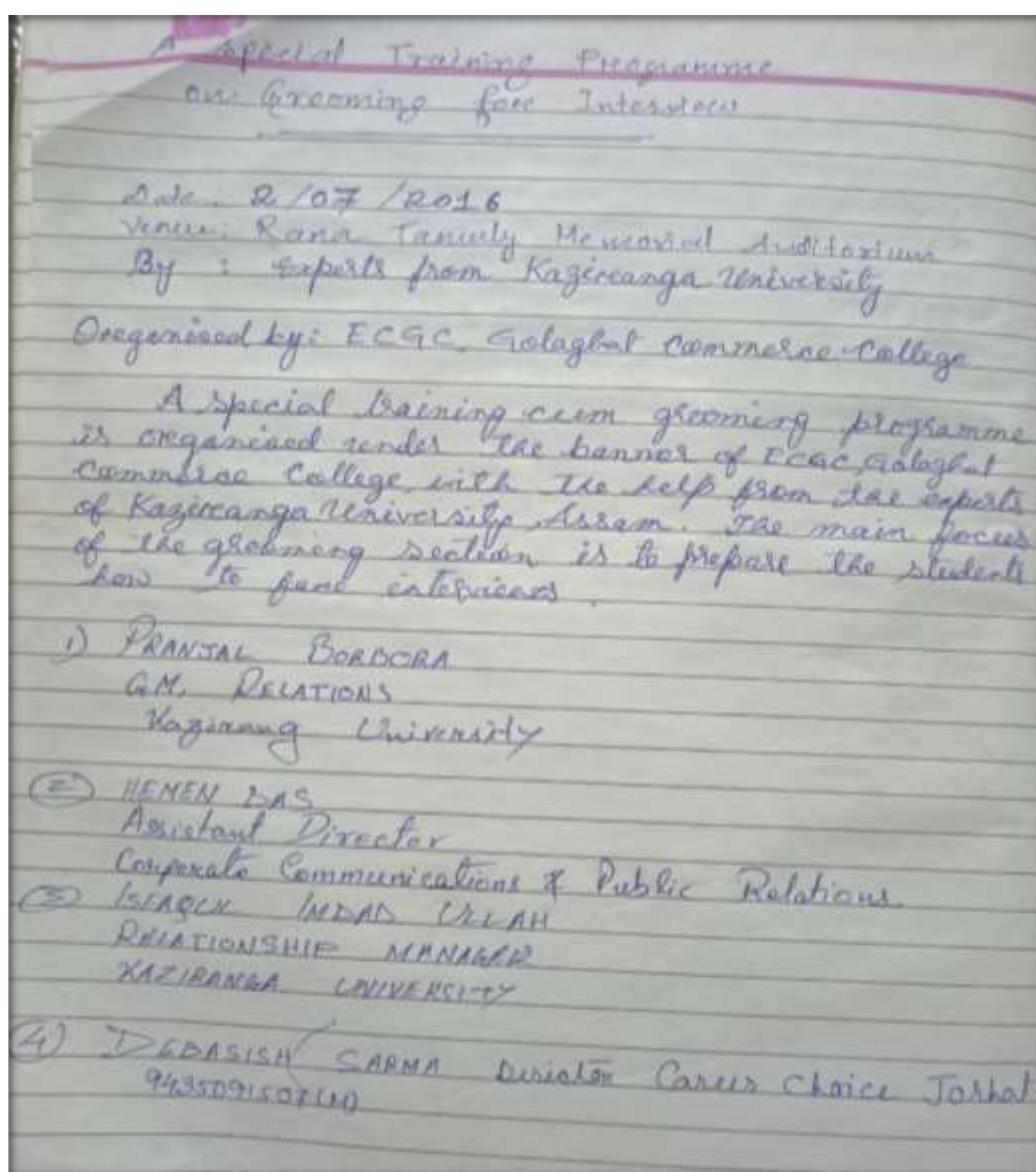 A Special Training Programme
on Grooming fore Interview
Date: 2/07/2016
Venue: Rana Tamuly Memorial Auditorium
By : Experts from Kazireanga University
Oreganised by: ECGC Golaghat Commerce College
A special training cum grooming programme
is oreganised under the banner of ECGC, Golaghat
Commerce College with the help from the experts
of Kazireanga University Assam. The main focus
of the grooming section is to prepare the students
how to face interviews.
1) PRANJAL BORDORA
G.M. RELATIONS
Kazirang University
2) HEMEN DAS
Assistant Director
Corporate Communications & Public Relations
3) IMDAD ULLAH
RELATIONSHIP MANAGER
KAZIRANGA UNIVERSITY
4) DEBASISH SARMA Career Choice Jorhat